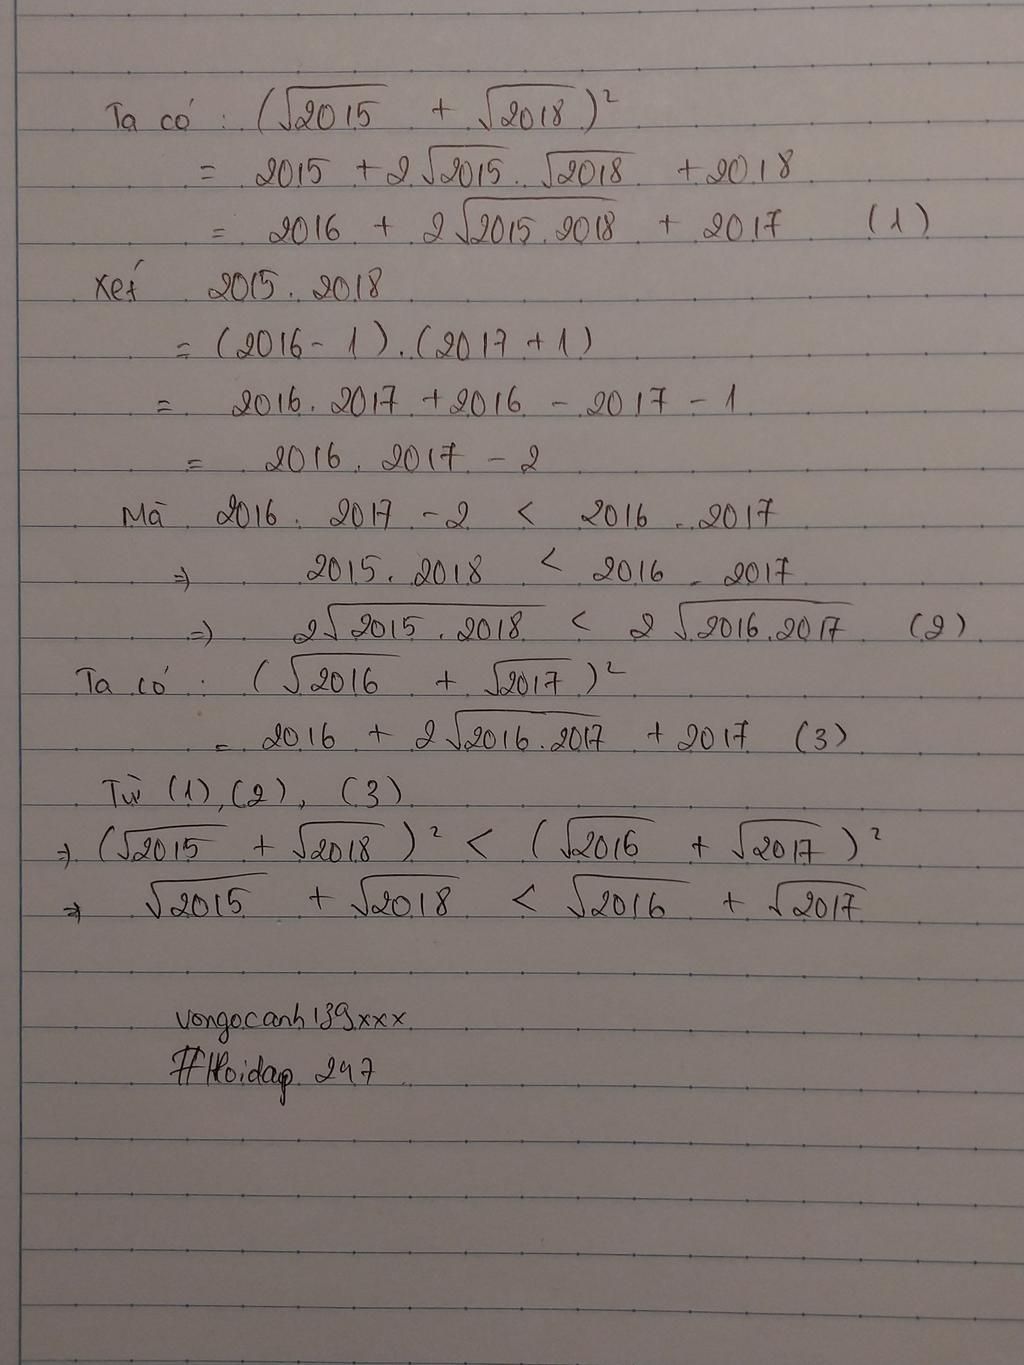 Ta có : (√2015 + √2018)²
= 2015 + 2√2015 . √2018 + 2018
= 2016 + 2√2015.2018 + 2017 (1)
Xét 2015 . 2018
= (2016 - 1) . (2017 + 1)
= 2016 . 2017 + 2016 - 2017 - 1
= 2016 . 2017 - 2
Mà 2016 . 2017 - 2 < 2016 . 2017
=> 2015 . 2018 < 2016 . 2017
=> 2√2015 . 2018 < 2√2016.2017 (2)
Ta có : (√2016 + √2017)²
= 2016 + 2√2016.2017 + 2017 (3)
Từ (1), (2), (3)
=> (√2015 + √2018)² < (√2016 + √2017)²
=> √2015 + √2018 < √2016 + √2017
vongocanh139xxx
#Hoidap 247